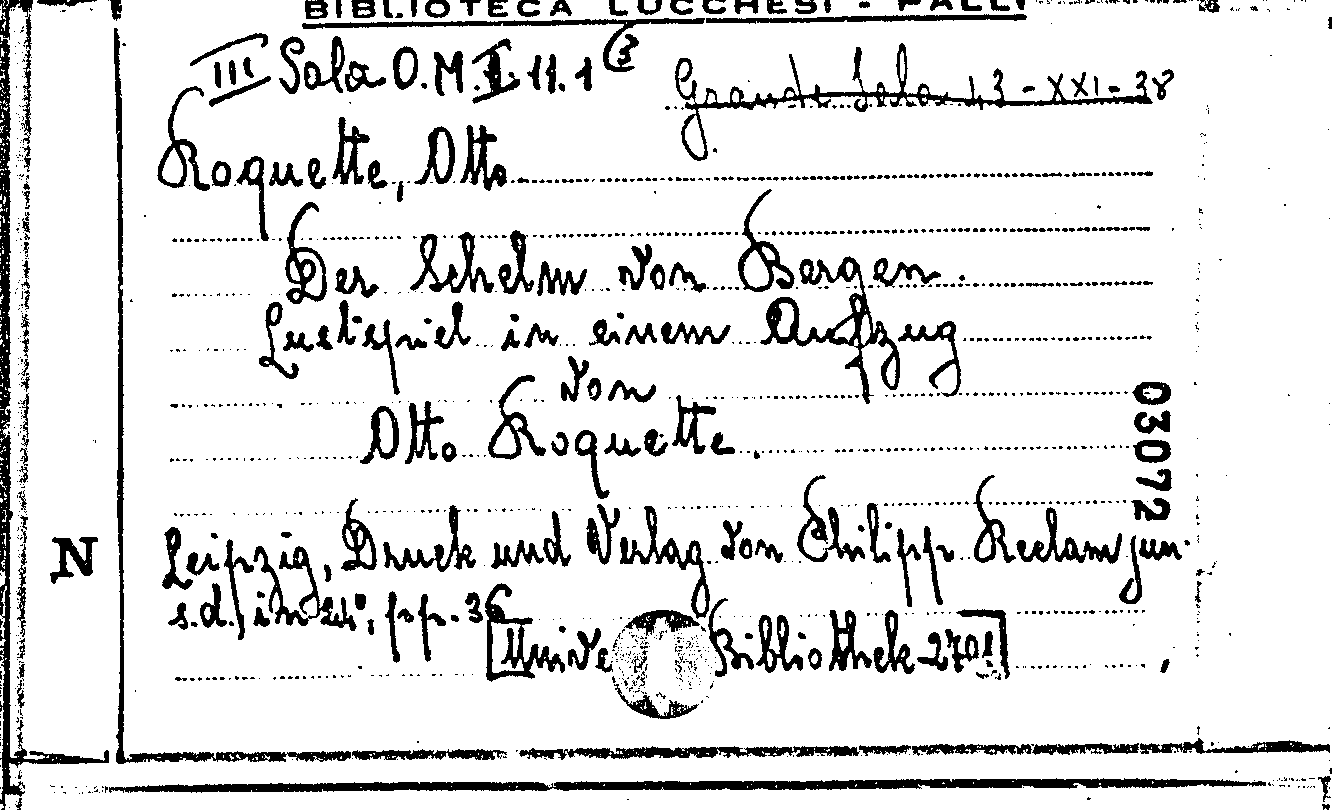 BIBLIOTECA LUCCHESI - PALLI
III Sala O.M. II. 11.1 (3
Grande Sala 43 - XXI - 38
Roquette, Otto
Der Schelm von Bergen.
Lustspiel in einem Aufzug
von
Otto Roquette.
03072
N
Leipzig, Druck und Verlag von Philipp Reclam jun.
s.d., in 24°, pp. 36
[Unive Bibliothek 2701]